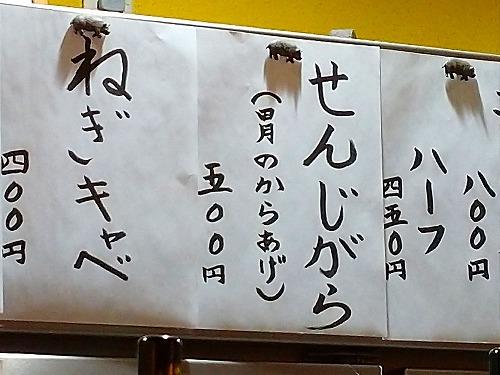 八〇〇円
ハーフ
四五〇円
せんじがら
(胃のからあげ)
五〇〇円
ねぎキャベ
四〇〇円